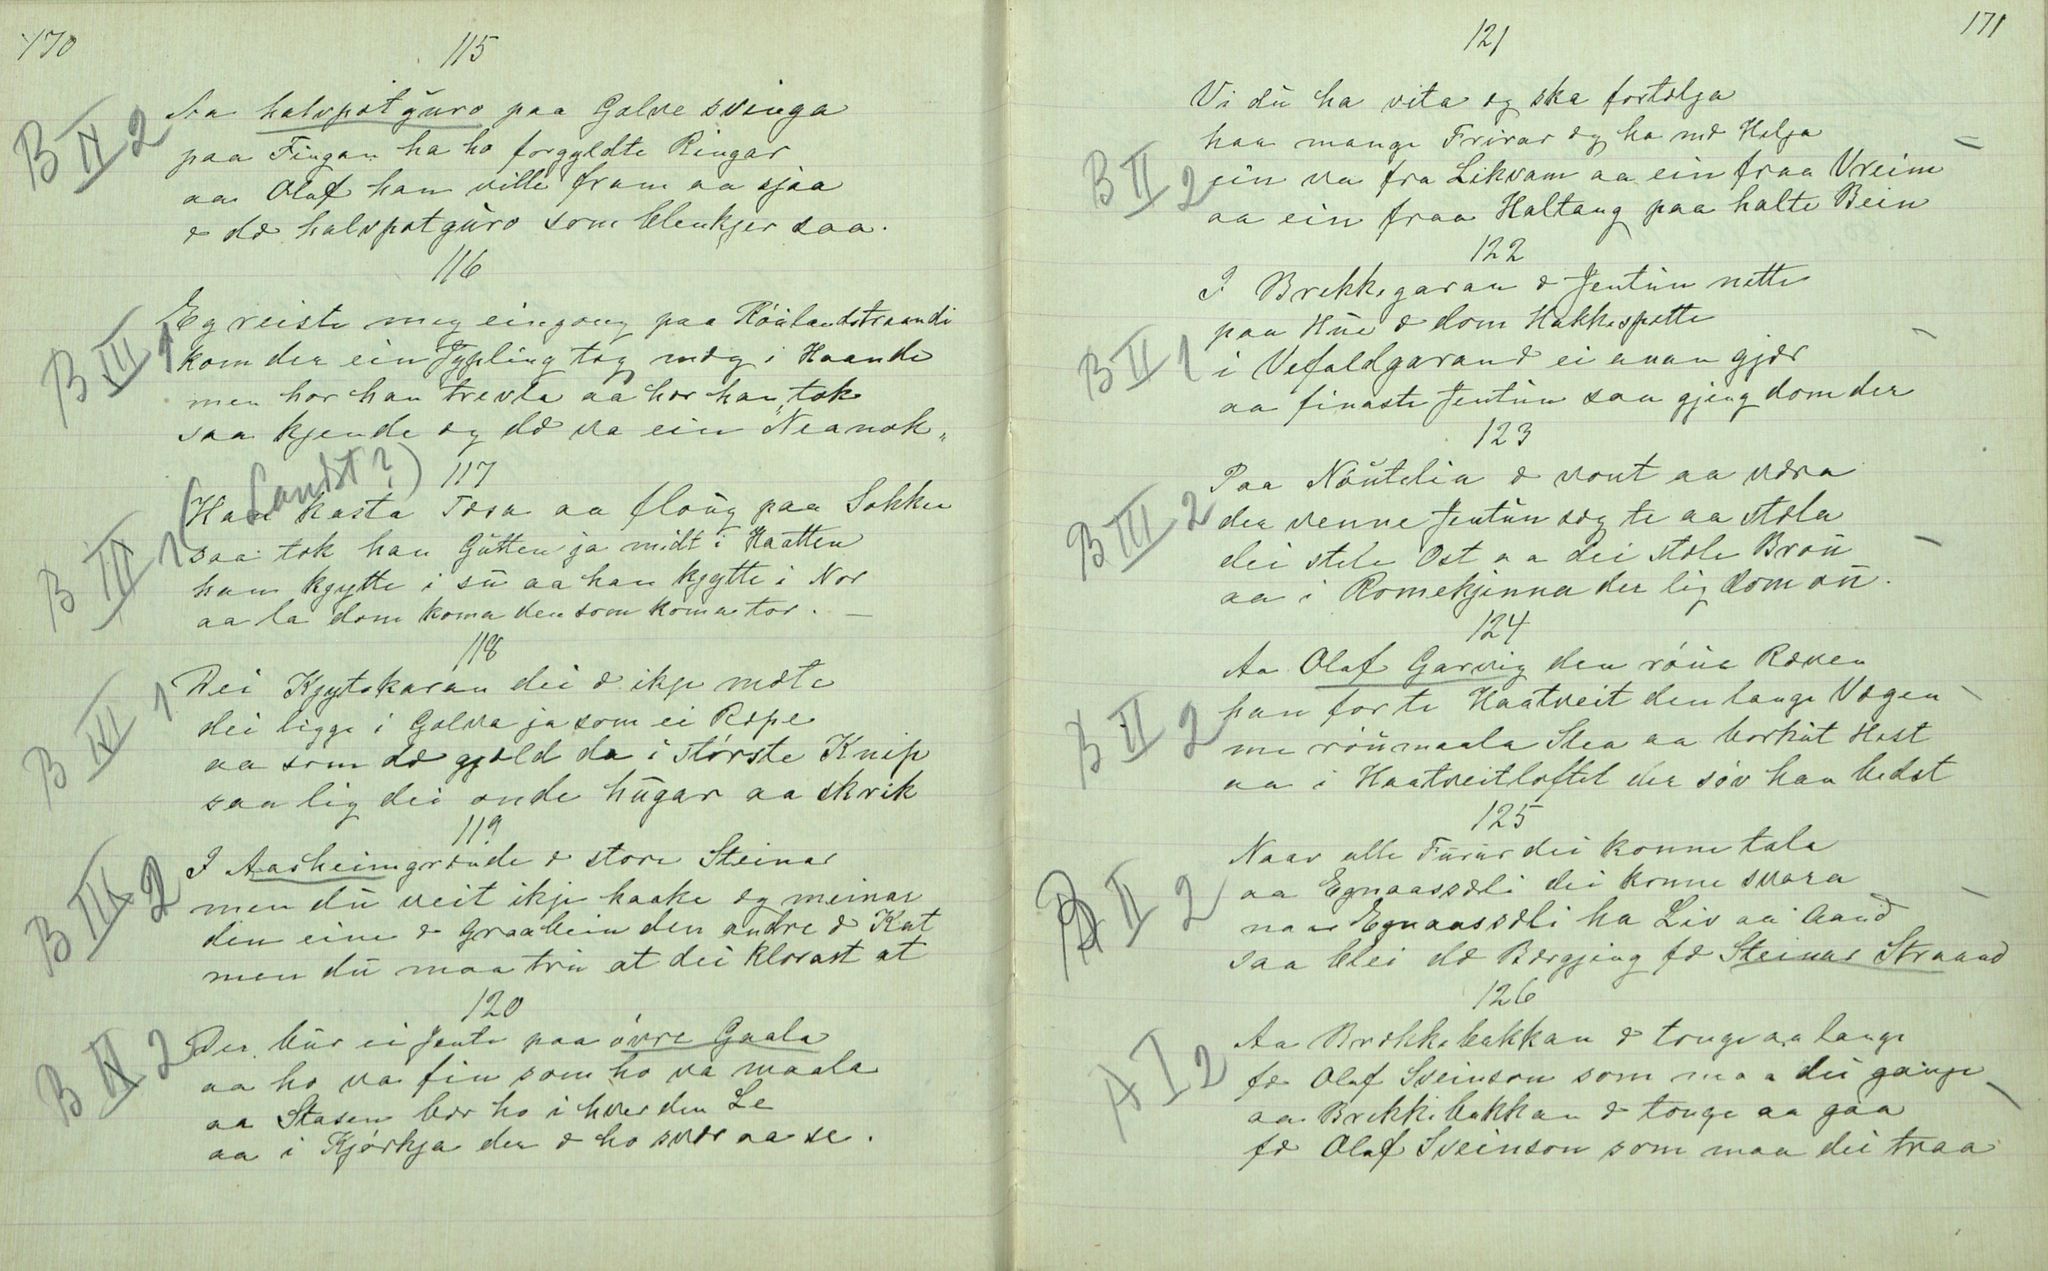 170
115
B II 2
Aa halvpotguro paa Golve svinga
paa Fingan ha ho forgyldte Ringar
aa Olaf han ville fram aa sjaa
æ dæ halvpotguro som blenkjer saa.
116
B III 1
Eg reiste meg eingong paa Röälandstraandi
kom der ein Jypling tog mæg i Haande
men hor han trevla aa hor han tok
saa kjende eg dæ va ein „Neanok„
(Landst?)
117
B III 1
Han kasta Tæsa aa floüg paa Sokken
saa tok han Gutten ja midt i Haatten
han kjytte i sü aa han kjytte i Nor
aa la dom koma den som koma tor. —
118
B VI 1
Dei Kjytokaran dei æ ikje mæte
dei ligge i Golva ja som ei Ræpe
aa som dæ gjæld da i störste Knip
saa lig dei onde hügar aa skrik
119
B III 2
I Aasheimgrænde æ store Steinar
men dü veit ikje haake eg meinar
din eine æ Graabein den andre æ Kat
men dü maa trü at dei klorast at
120
B II 2
Der bür ei Jente paa övre Gaala
aa ho va fin som ho va maala
aa Stasen bær ho i hver den Le
aa i Kjörkja der æ ho svær aa se.
171
121
B II 2
Vi dü ha vita eg ska fortælja
haa mange Frirar eg ha mæ Helja
ein va fra Likvam aa ein fraa Vreim
aa ein fraa Haltang paa halte Bein
122
B II 1
I Brekkegaran æ Jentün nette
paa Hüe æ dom Hakkespette
i Vefaldgaran æ ei anan gjær
aa finaste Jentün saa gjeng dom der
123
B III 2
Paa Nöutelia æ vont aa væra
der venne Jentün sæg te aa stæla
dei stele Ost aa dei stæle Bröu
aa i Romekjinna der lig dom öü.
124
B II 2
Aa Olaf Garvig den röüe Ræven
han for te Haatveit den lange Vægen
me röümaala Slea aa borküt Hest
aa i Haatveitloftet der söv han bedst
125
B II 2
Naar alle Fürür dei konne tala
aa Egnaassæli dei konne svara
naar Egnaassæli ha Liv aa Aand
saa blei dæ Bærgjing fæ Steinar Straand
126
A I 2
Aa Brækkebakkan æ tonge aa lange
fæ Olaf Sveinson som maa dei gange
aa Brekkebakkan æ tonge aa gaa
fæ Olaf Sveinson som maa dei traa